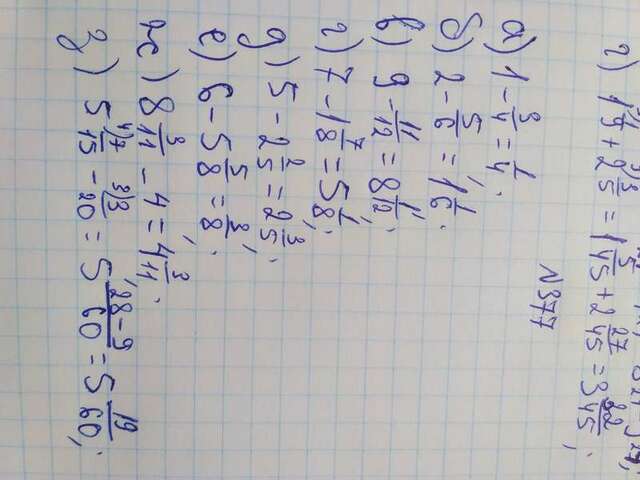 г) 1 1/9 + 2 3/5 = 1 5/45 + 2 27/45 = 3 32/45;
№377
а) 1 - 3/4 = 1/4;
б) 2 - 5/6 = 1 1/6;
в) 9 - 11/12 = 8 1/12;
г) 7 - 1 7/8 = 5 1/8;
д) 5 - 2 2/5 = 2 3/5;
е) 6 - 5 5/8 = 3/8;
ж) 8 3/11 - 4 = 4 3/11;
з) 5 7/15 - 3/20 = 5 28-9/60 = 5 19/60;